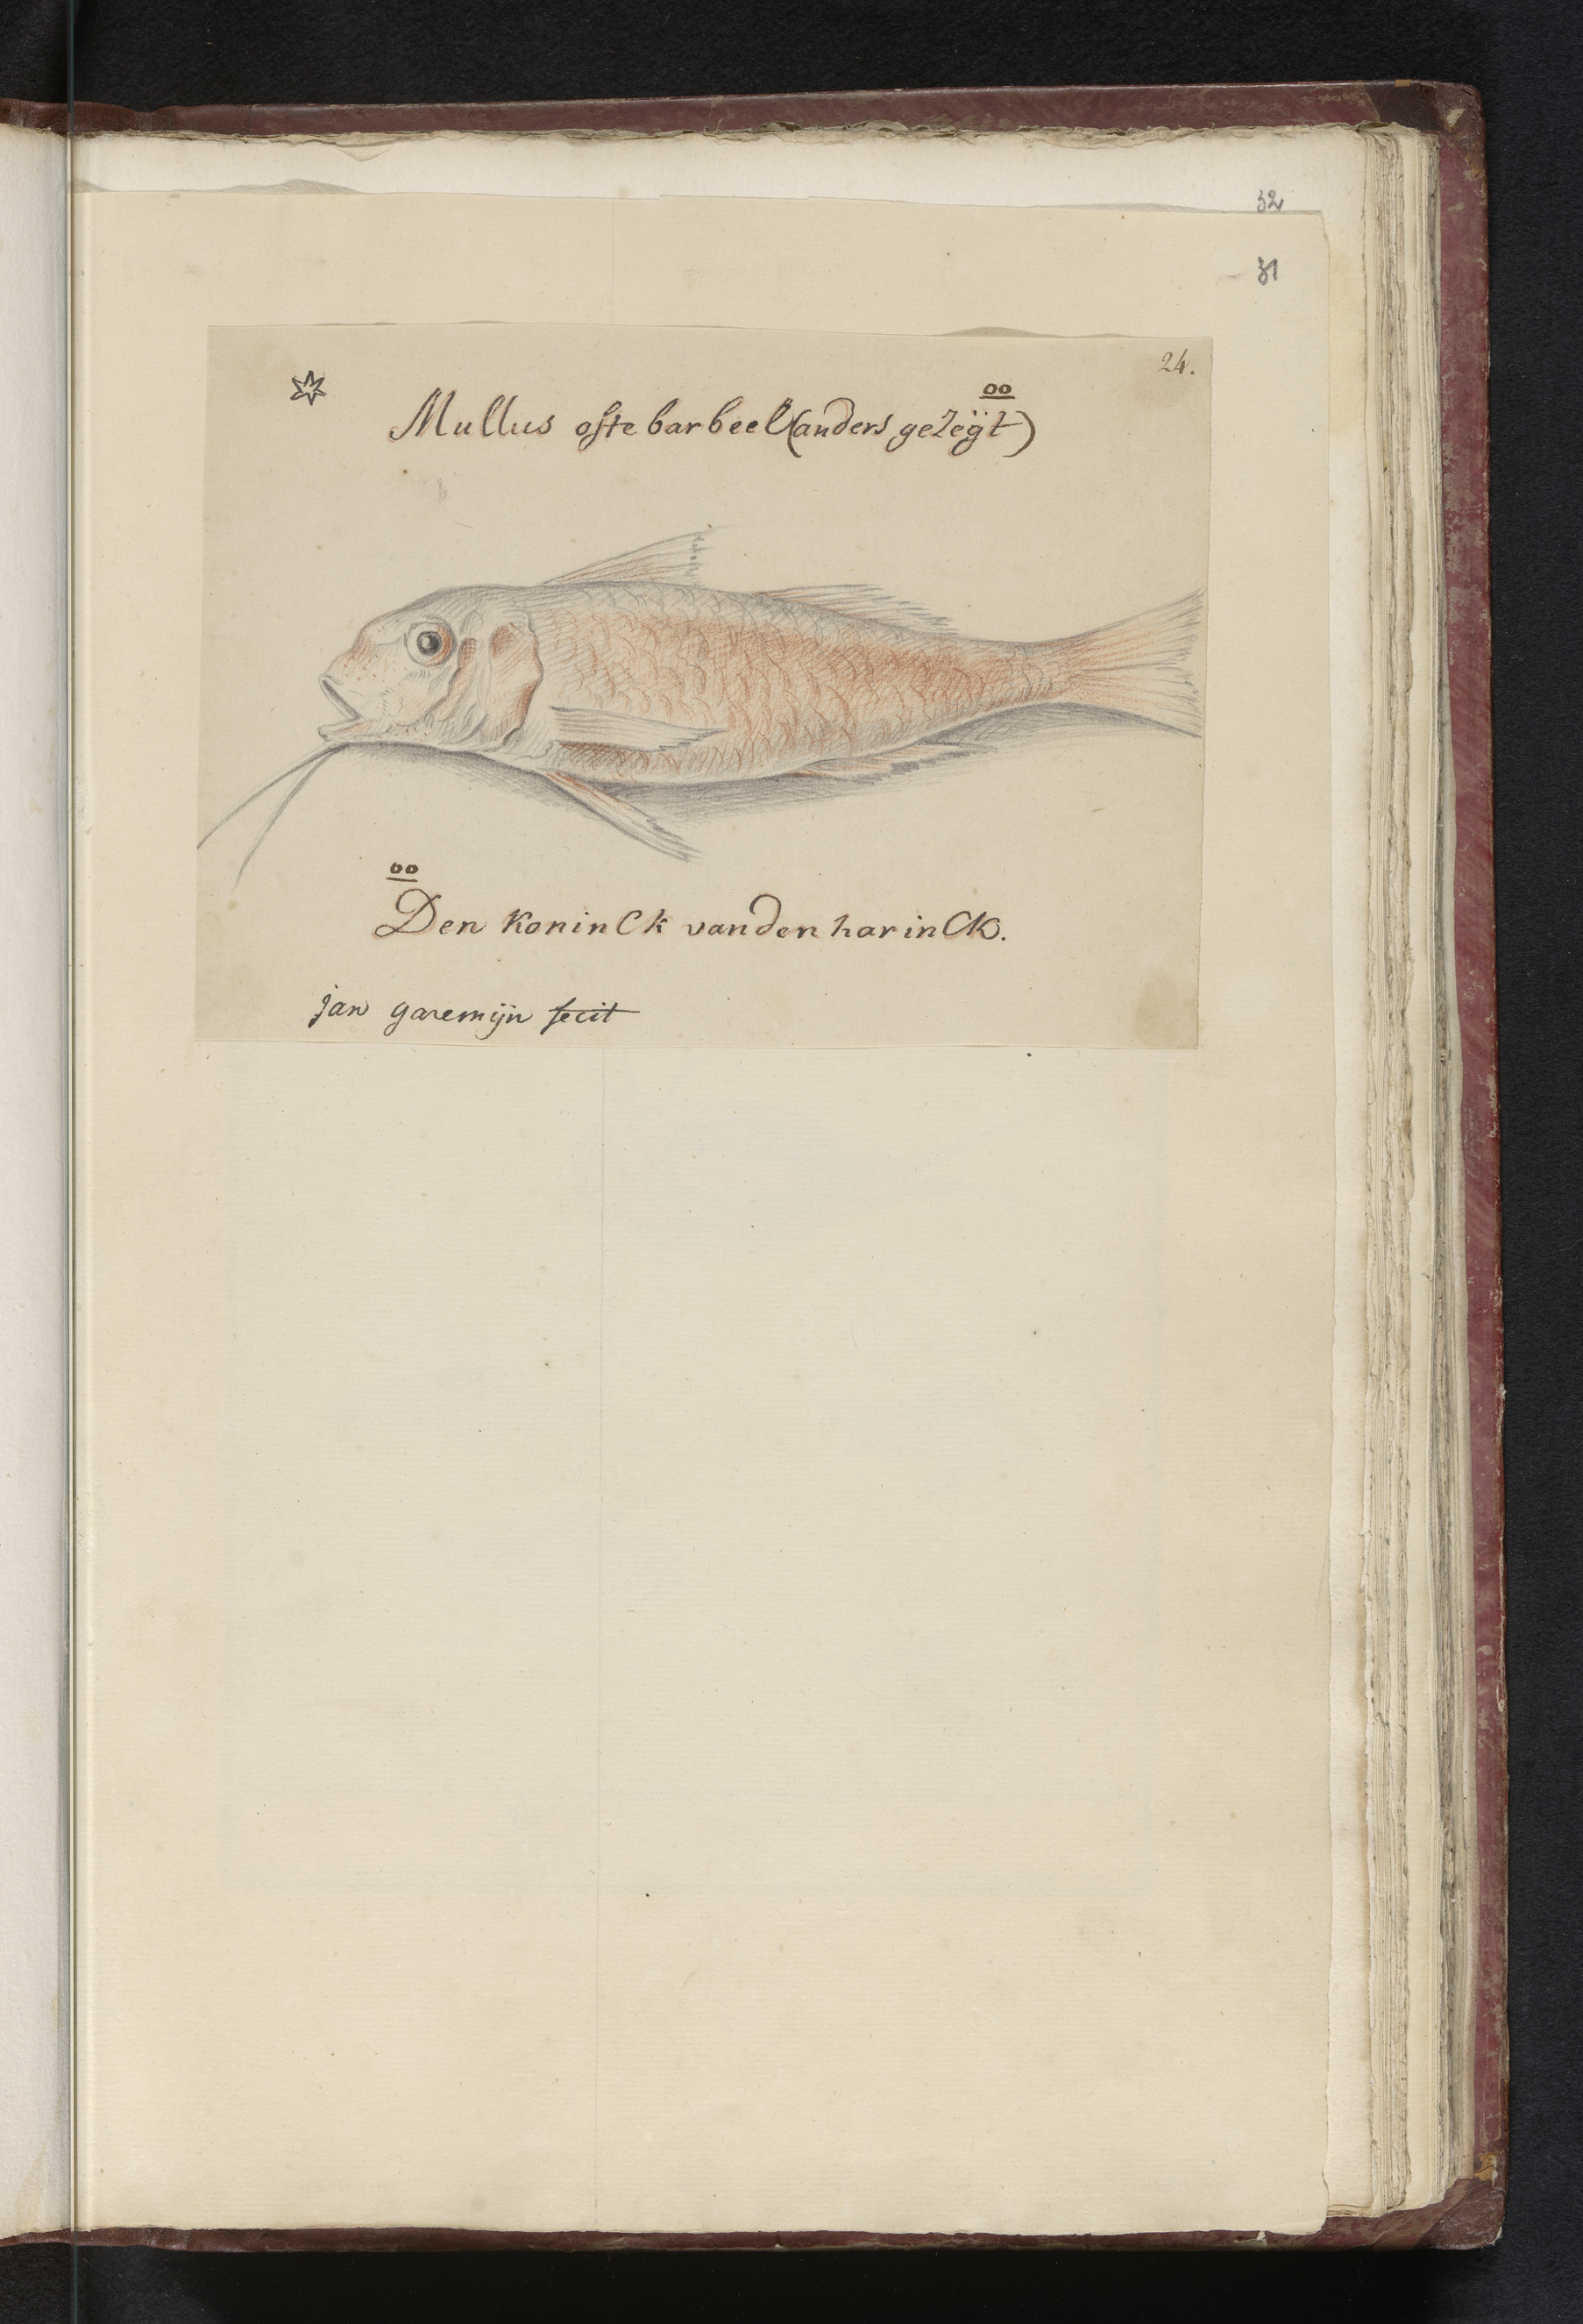 32
31
24.
oo
Mullus ofte barbeel (anders gezeÿt)
oo
Den Koninck vanden harinck.
jan garemijn fecit